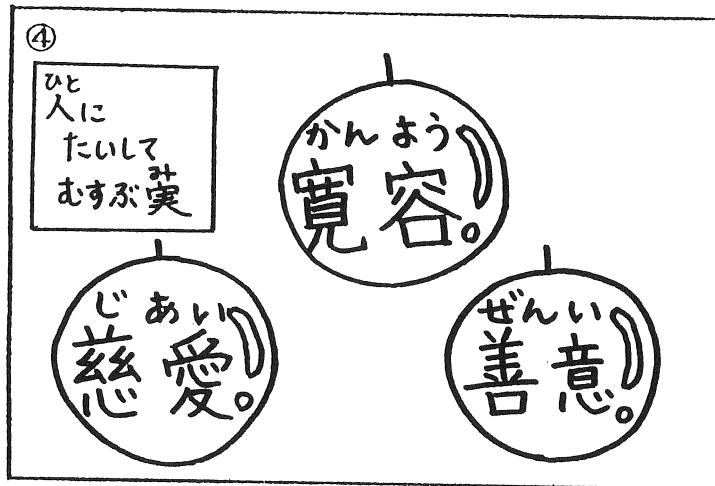 ④
ひと
人に
たいして
み
むすぶ実
かんよう
寛容。
じあい
慈愛。
ぜんい
善意。